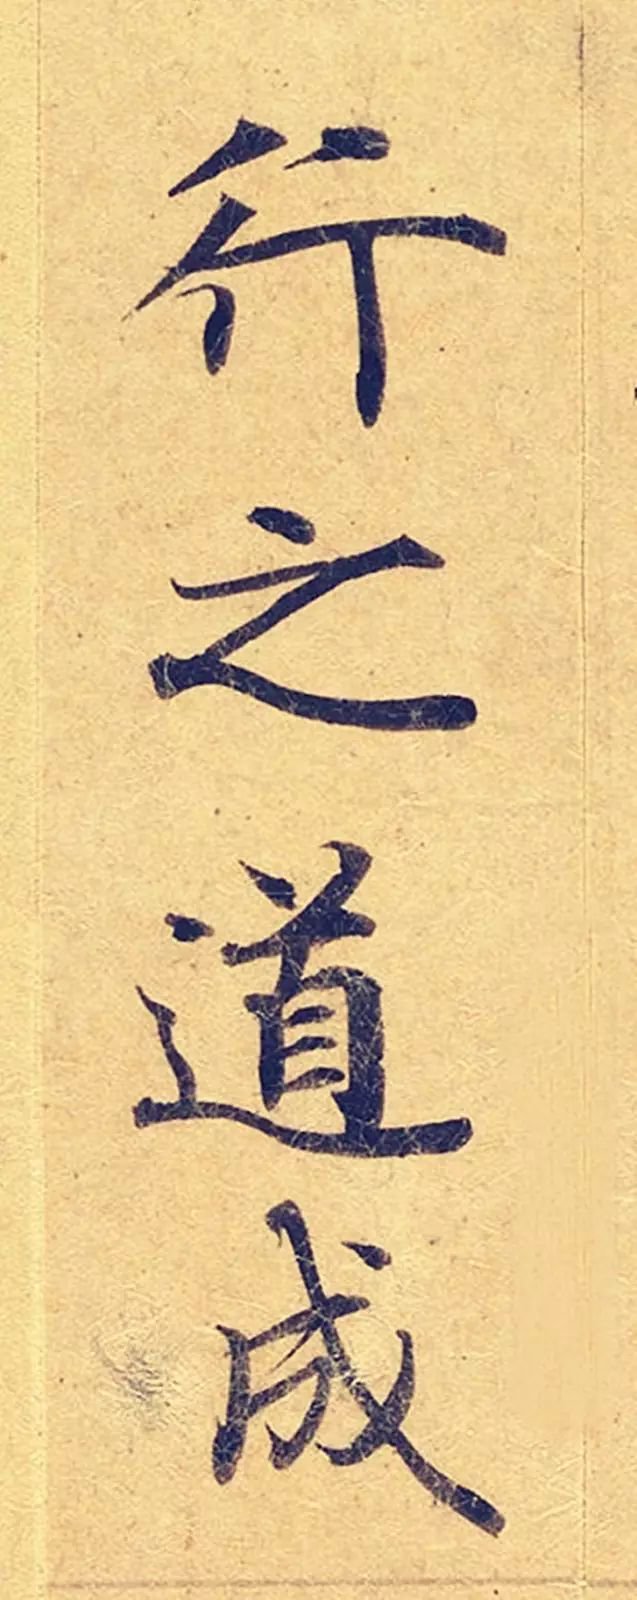 行之道成